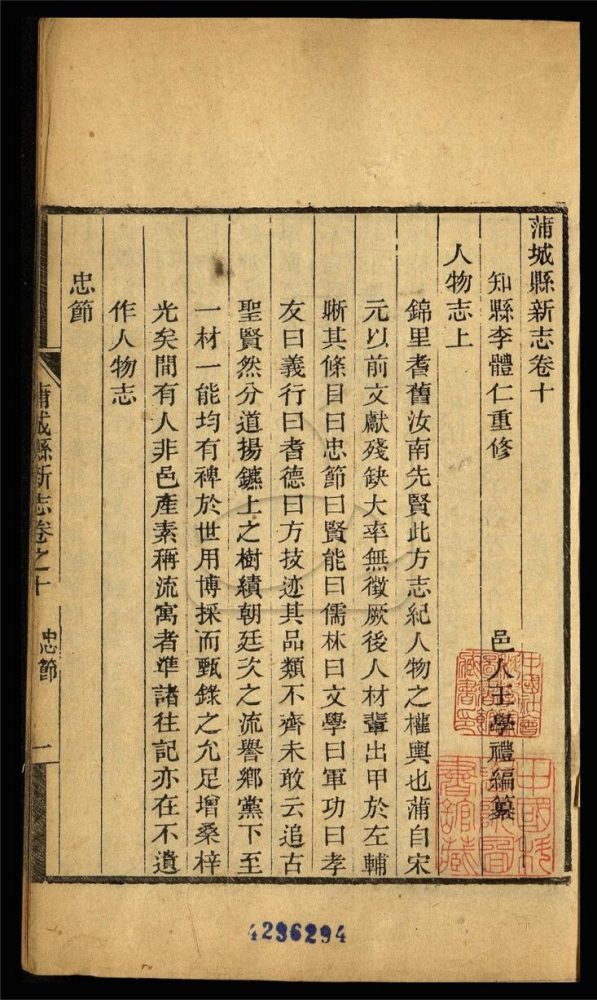 蒲城縣新志卷十
知縣李體仁重修　邑人王學禮編纂
人物志上
錦里耆舊汝南先賢此方志紀人物之權輿也蒲自宋
元以前文獻殘缺大率無徵厥後人材輩出甲於左輔
晰其條目曰忠節曰賢能曰儒林曰文學曰軍功曰孝
友曰義行曰耆德曰方技迹其品類不齊未敢云追古
聖賢然分道揚鑣上之樹績朝廷次之流譽鄉黨下至
一材一能均有裨於世用博採而甄錄之允足增桑梓
光矣間有人非邑產素稱流寓者準諸往記亦在不遺
作人物志
忠節
蒲城縣新志卷之十　忠節　一
4296294